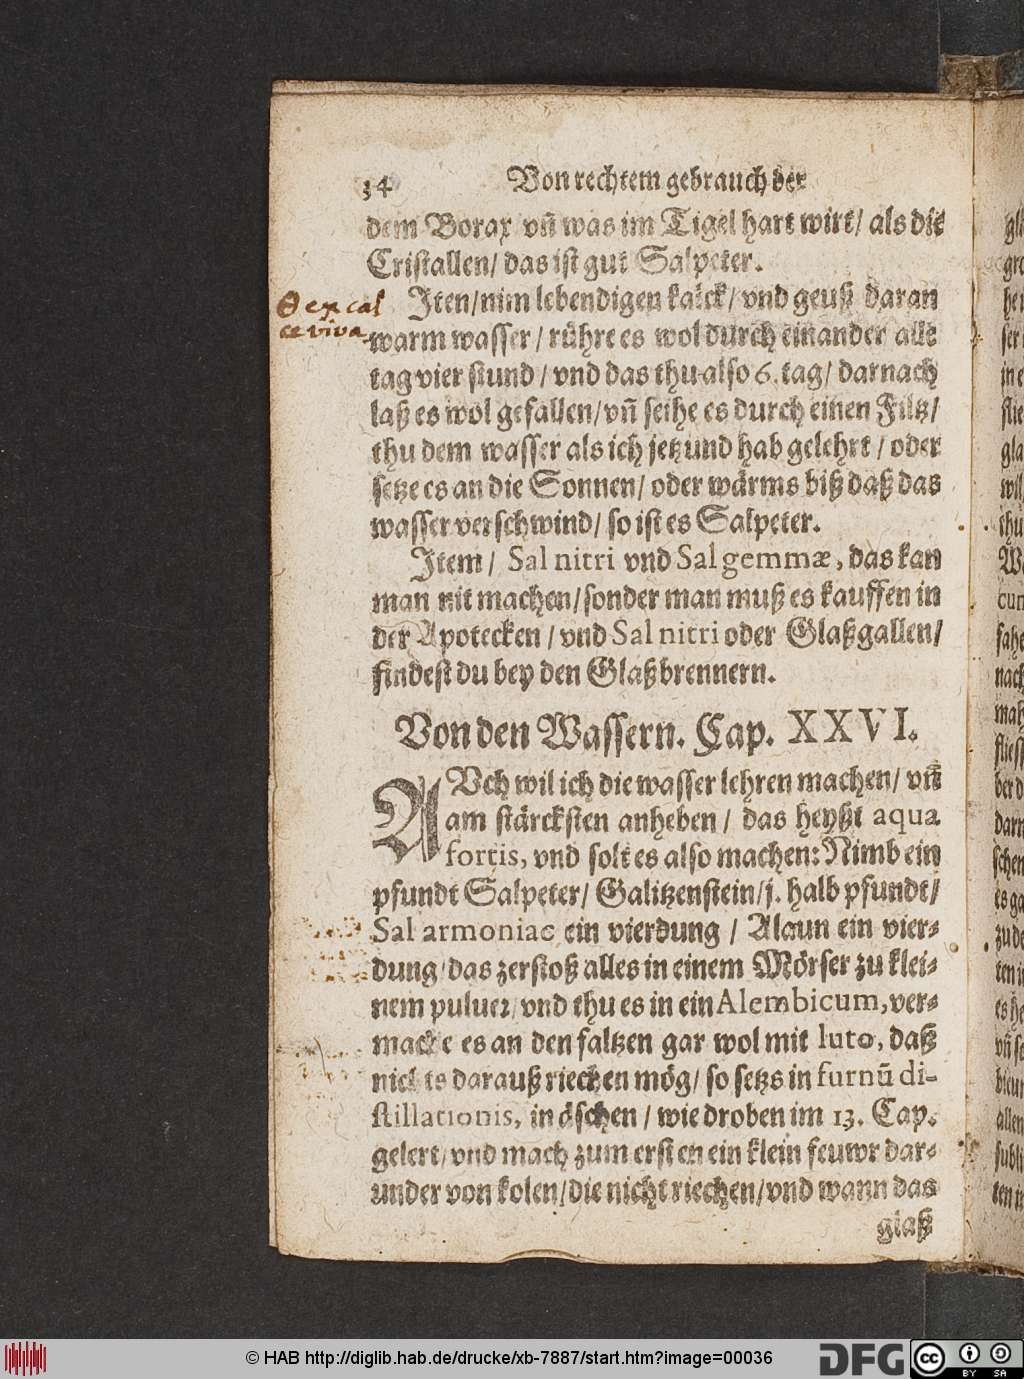 34 Von rechtem gebrauch der
dem Borax vñ was im Tigel hart wirt/ als die
Cristallen/ das ist gut Salpeter.
Iten/nim lebendigen kalck/ vnd geuß daran
ex cal
ce viva
warm wasser / rühre es wol durch einander alle
tag vier stund / vnd das thu also 6. tag/ darnach
laß es wol gefallen/ vñ seihe es durch einen Filtz/
thu dem wasser als ich jetzund hab gelehrt / oder
setze es an die Sonnen/ oder wärms biß daß das
wasser verschwind/ so ist es Salpeter.
Item / Sal nitri vnd Sal gemmæ, das kan
man nit machen/ sonder man muß es kauffen in
der Apotecken / vnd Sal nitri oder Glaßgallen/
findest du bey den Glaßbrennern.
Von den Wassern. Cap. XXVI.
AVch wil ich die wasser lehren machen/ vñ
am stärcksten anheben / das heyßt aqua
fortis, vnd solt es also machen: Nimb ein
pfundt Salpeter/ Galitzenstein/ j. halb pfundt/
Sal armoniac ein vierdung / Alaun ein vier-
dung/ das zerstoß alles in einem Mörser zu klei-
nem puluer/ vnd thu es in ein Alembicum, ver-
mache es an den faltzen gar wol mit luto, daß
nichts darauß riechen mög/ so setzs in furnū di-
stillationis, in äschen / wie droben im 13. Cap.
gelert/ vnd mach zum ersten ein klein feuwr dar-
under von kolen/ die nicht riechen/ vnd wann das
glaß
© HAB http://diglib.hab.de/drucke/xb-7887/start.htm?image=00036
DFG
cc
BY SA